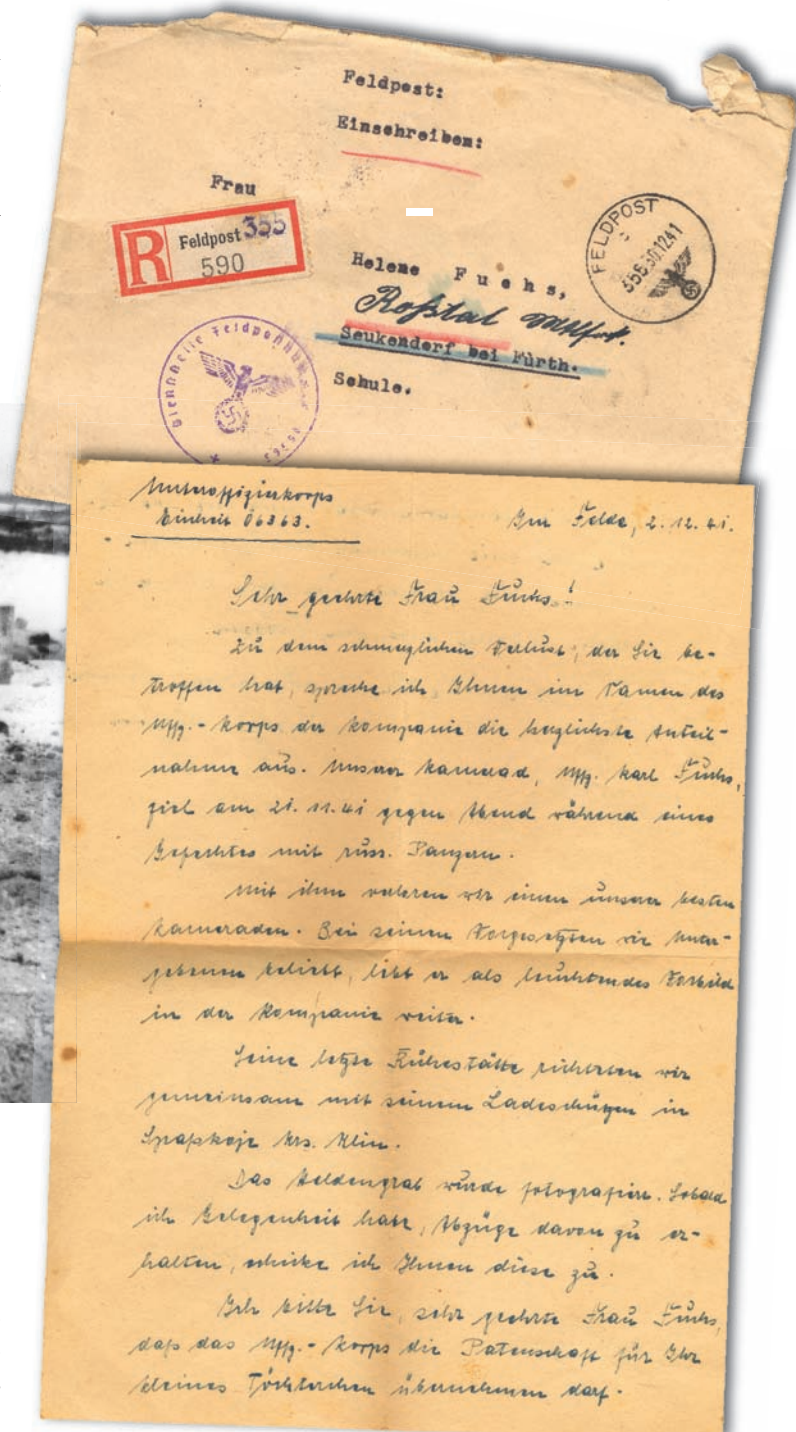 Feldpost:
Einschreiben:
Frau
R Feldpost 355
590
FELDPOST
Helene Fuchs,
Roßtal
Seukendorf bei Fürth.
Schule.
Dienststelle Feldpostnummer
Unteroffizierkorps
Einheit 06363.
Im Felde, 2.12.41.
Sehr geehrte Frau Fuchs!
Zu dem schmerzlichen Verlust, der Sie be-
troffen hat, spreche ich Ihnen im Namen des
Uffz.-Korps der Kompanie die herzlichste Anteil-
nahme aus. Unser Kamerad, Uffz. Karl Fuchs,
fiel am 21.11.41 gegen Abend während eines
Gefechtes mit russ. Panzern.
Mit ihm verloren wir einen unserer besten
Kameraden. Bei seinen Vorgesetzten wie Unter-
gebenen beliebt, lebt er als leuchtendes Vorbild
in der Kompanie weiter.
Seine letzte Ruhestätte richteten wir
gemeinsam mit seinem Ladeschützen in
Spaßkoje Krs. Klin.
Das Heldengrab wurde fotografiert. Sobald
ich Gelegenheit habe, Abzüge davon zu er-
halten, schicke ich Ihnen diese zu.
Ich bitte Sie, sehr geehrte Frau Fuchs,
daß das Uffz.-Korps die Patenschaft für Ihr
kleines Töchterchen übernehmen darf.